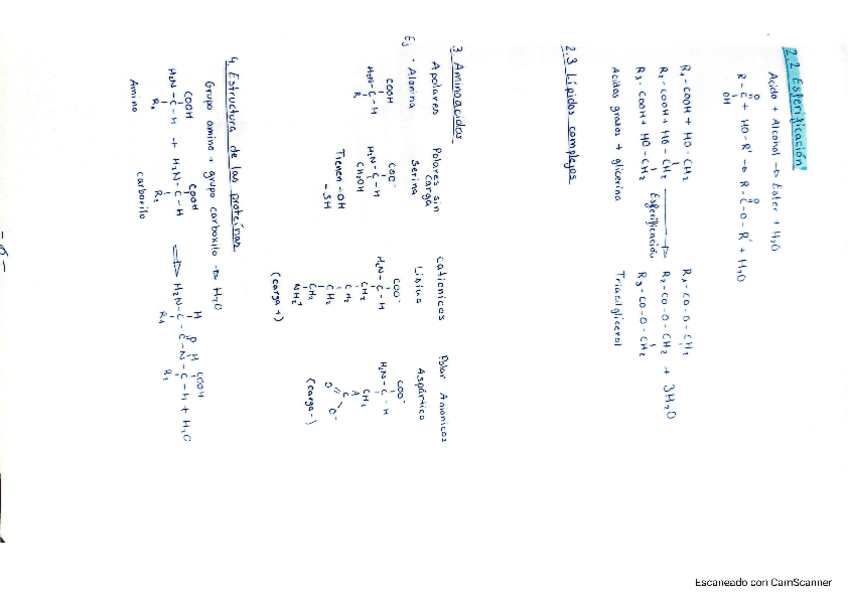 2.2 Esterificación
Acido + Alcohol → Ester + H2O
R-C + HO-R' → R-C-O-R' + H2O
O
OH
O
R1-COOH + HO-CH2
R2-COOH + HO-CH2
R3-COOH + HO-CH2
Esterificación
R1-CO-O-CH2
R2-CO-O-CH2 + 3H2O
R3-CO-O-CH2
Acidos grasos + glicerina
Triacilglicerol
2.3 Lípidos complejos
3 Aminoacidos
Apolares
Polares sin carga
cationicos
Polar Anionicos
Ej · Alanina
Serina
Lisina
Aspártico
COOH
H2N-C-H
R
COO-
H2N-C-H
CH2OH
Tienen -OH
-SH
COO-
H2N-C-H
CH2
CH2
CH2
CH2
NH3+
(carga +)
COO-
H2N-C-H
CH2
C
O
O-
(carga -)
4. Estructura de las proteínas
Grupo amino + grupo carboxilo → H2O
COOH
H2N-C-H + H2N-C-H
R1
COOH
R2
H2N-C-C-N-C-H + H2O
H
O
H
COOH
R1
R2
Amino
carboxilo
Escaneado con CamScanner